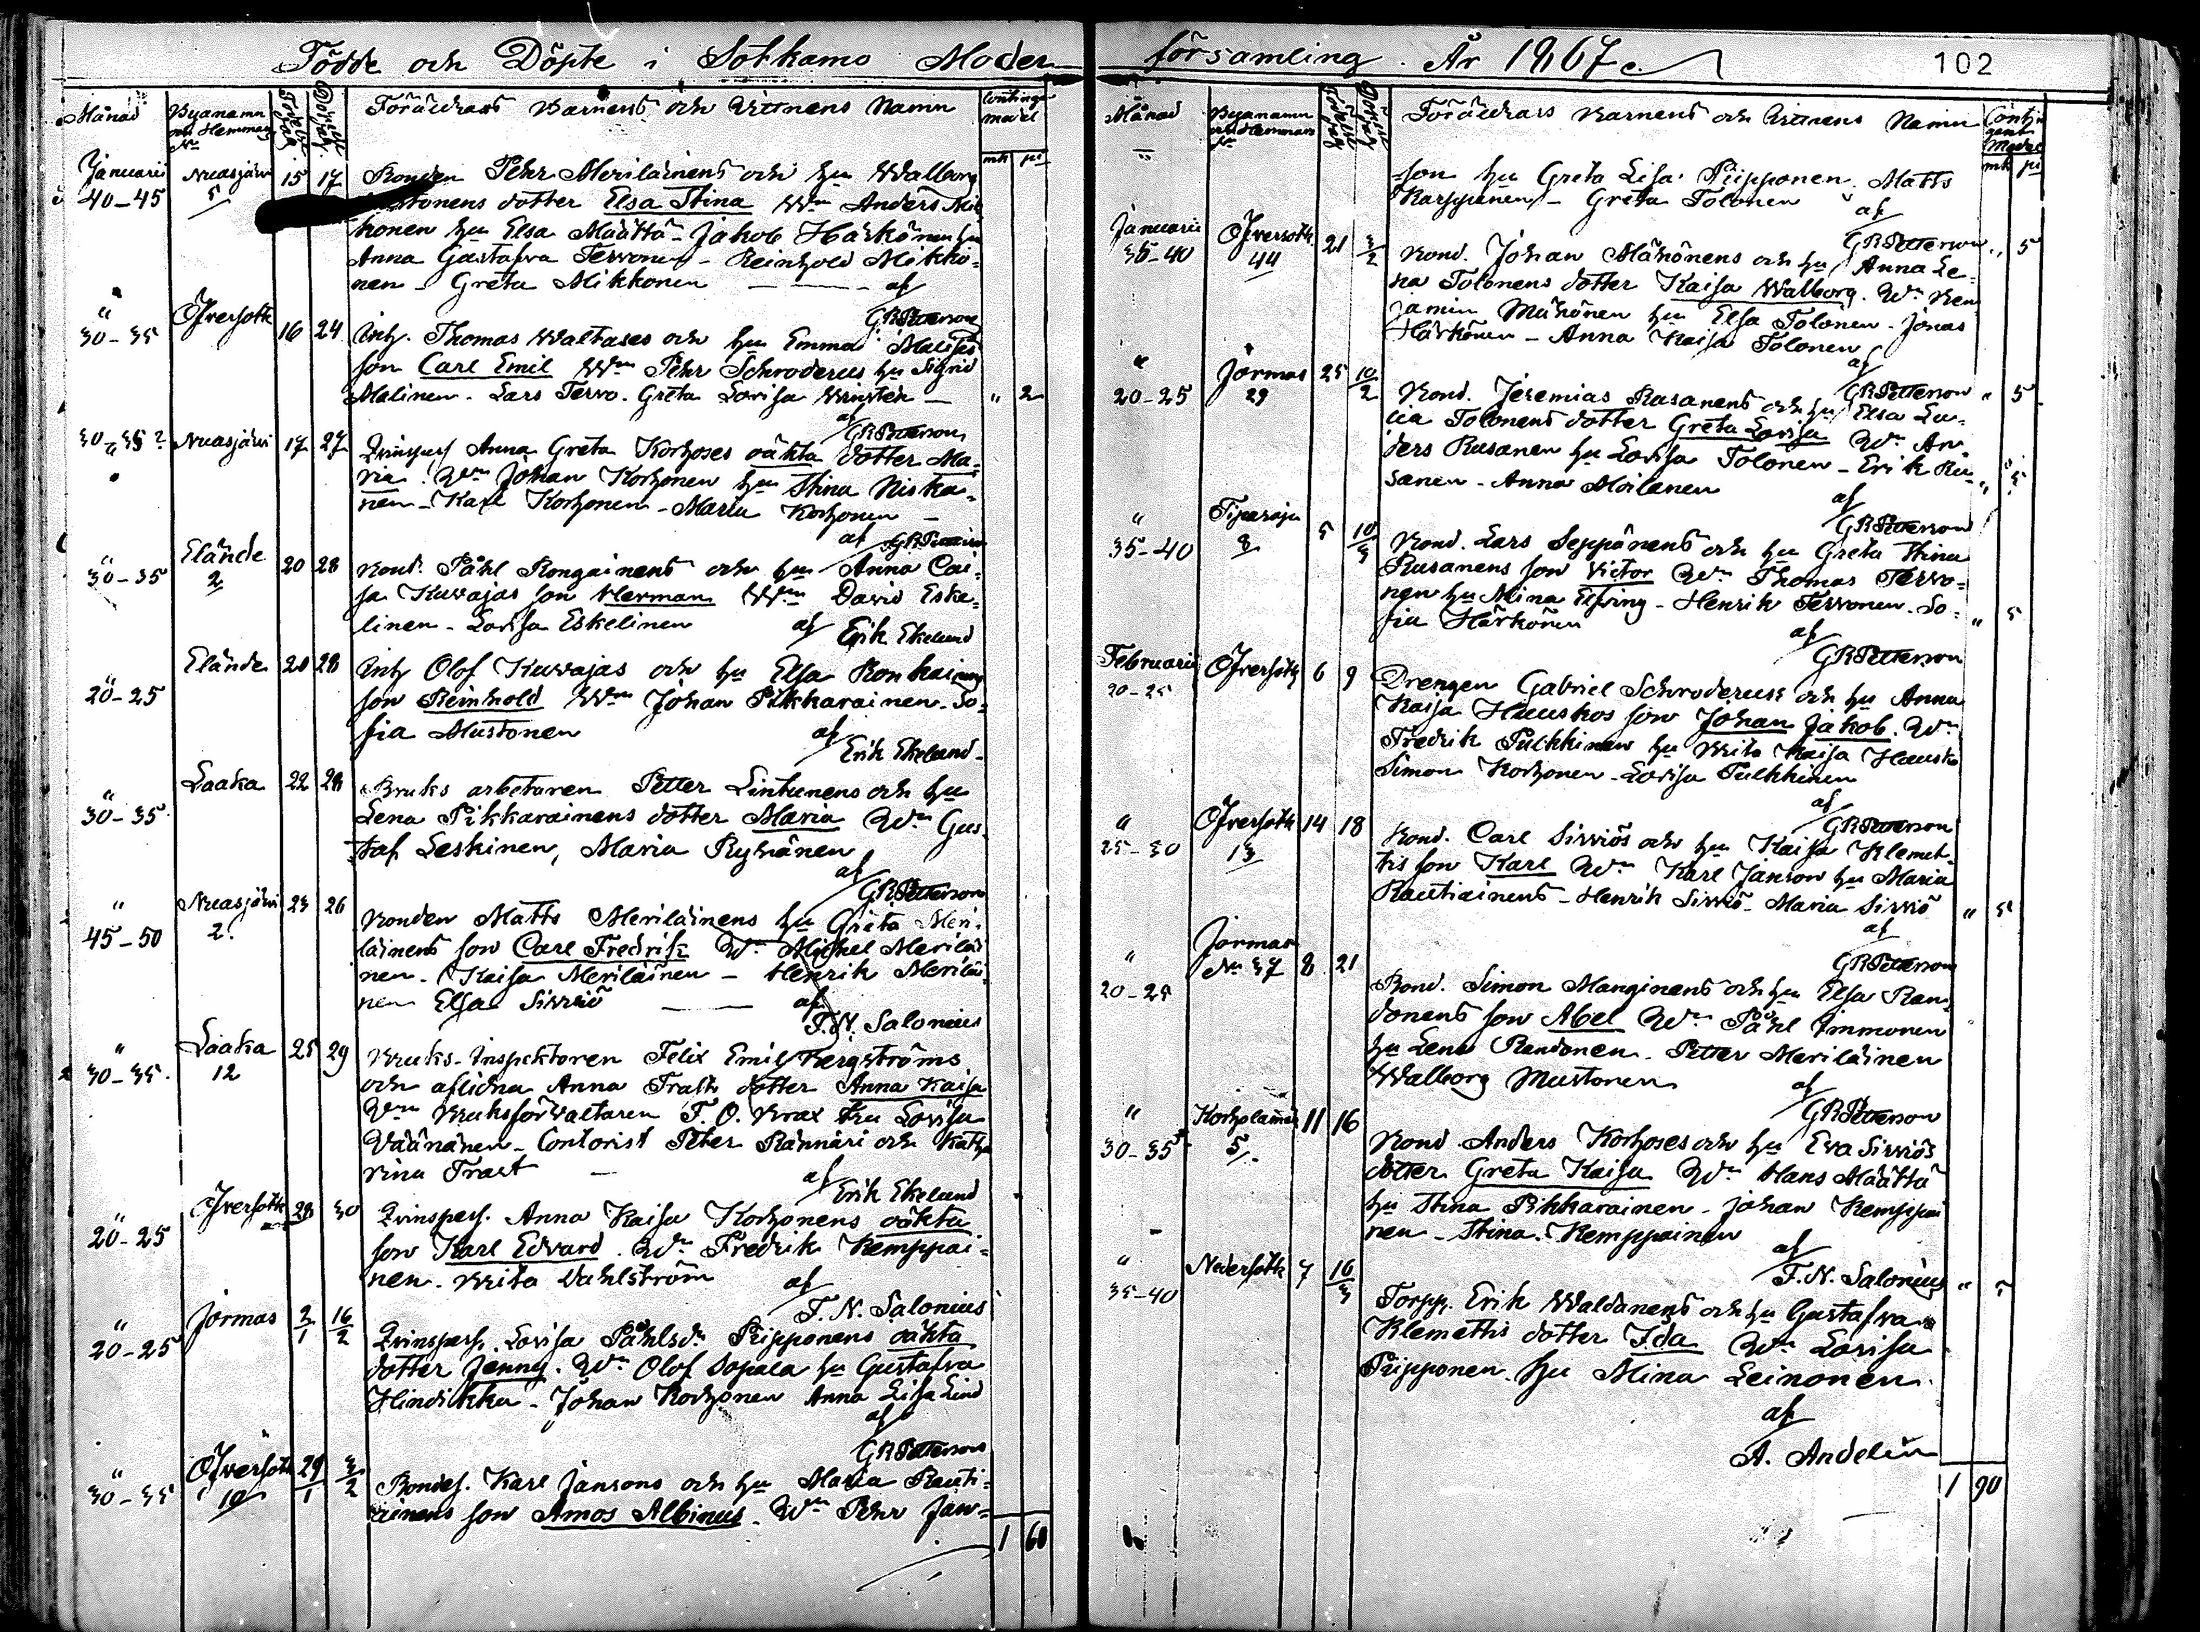 Födde och Döpte i Sotkamo Moder
Månad
Byanamn och Hemmans No
Föräldrars Barnens och Vittnens Namn
mk pi
Januarii Nuasjärvi 15 17 Bonden Pehr Meriläinens och hu Walborg
40-45 5 dotter Elsa Stina Wn Anders Mik
konen hu Elsa Määttä - Jakob Härkönen hu
Anna Gustafva Tervonen - Reinhold Mikko-
nen - Greta Mikkonen af
GRPetterson
" Öfversotk 16 24 Inh. Thomas Waltases och hu Emma
30-35 son Carl Emil Wn Pehr Schroderus hu Sigrid
Malinen - Lars Tervo. Greta Lovisa " 2
af
GRPetterson
30-35 Nuasjärvi 17 27 Qvinspers Anna Greta Korhoses oäkta dotter Ma-
ria. Wn Johan Korhonen hu Stina Niska-
nen - Karl Korhonen - Maria Korhonen
af GRPetterson
" Elände 20 28 Bond. Påhl Rongainens och hu Anna Cai-
30-35 2 sa Kuvajas son Herman Wn David Eske-
linen - Lovisa Eskelinen af Erik Ekelund
" Elände 20 28 Inh Olof Kuvajas och hu Elsa
20-25 son Reinhold Wn Johan Pikkarainen - So-
fia Mustonen af
Erik Ekelund
" Laaka 22 28 Bruks arbetaren Petter Lintunens och hu
30-35 Lena Pikkarainens dotter Maria Wn Gus-
taf Leskinen, Maria Ryhänen
af
GRPetterson
" Nuasjärvi 23 26 Bonden Matts Meriläinens hu Greta Meri-
45-50 2 läinens son Carl Fredrik Wn Michel Meriläi
nen - Kaisa Meriläinen - Henrik Meriläi
nen Elsa Sirviö af
F.N. Salonius
" Laaka 25 29 Bruks-Inspektoren Felix Emil Bergströms
30-35 12 och aflidna Anna Trast dotter Anna Kaisa
Wn Bruksförvaltaren F. O. Brax hu Lovisa
Väänänen - Contorist Peter Rännäri och Kath
rina Trast af
Erik Ekelund
" Öfversotk 28 30 Qvinspers. Anna Kaisa Korhonens oäkta
20-25 son Karl Edvard. Wn Fredrik Kemppai-
nen - Brita Vahlström af
F. N. Salonius
" Jormas 2/1 16/2 Qvinspers. Lovisa Påhlsdr Piipponens oäkta
20-25 dotter Jenny. Wn Olof Sopala hu Gustafva
Hindikka - Johan Korhonen Anna Lisa Lind
af
GRPetterson
" Öfversotk 29/1 3/2 Bondes. Karl Jansons och hu Maria Rauti-
30-35 10 ainens son Amos Albinus - Wn Pehr Jan-
1 60
församling. År 1867. 102
Månad
Byanamn och Hemmans No
Föräldrars Barnens och Vittnens Namn
mk pi
son hu Greta Lisa Piipponen. Matts
Karppinen - Greta Tolonen
af
GRPetterson " 5
Januarii Öfversotk 21 3/2 Bond. Johan Mähönens och hu Anna Le-
35-40 44 na Tolonens dotter Kaisa Walborg. Wn Ben
jamin Mähönen hu Elsa Tolonen - Jonas
Härkönen - Anna Kaisa Tolonen
af
GRPetterson " 5
" Jormas 25 10/2 Bond. Jeremias Rusanens och hu Elsa Lu-
20-25 29 cia Tolonens dotter Greta Lovisa Wn An-
ders Rusanen hu Lovisa Tolonen - Erik Ru-
sanen - Anna Moilanen " 5
af
GRPetterson
" Tipasoja 5 10/3 Bond. Lars Seppänens och hu Greta Stina
35-40 8 Rusanens son Victor Wn Thomas Tervo-
nen hu Mina Elfving - Henrik Tervonen - So-
fia Härkönen " 5
af
GRPetterson
Februarii Öfversotk 6 9 Drengen Gabriel Schroderuss och hu Anna
20-25 Kaisa Hauskos son Johan Jakob. Wn
Fredrik Pulkkinen hu Brita Kaisa Hausk
Simon Korhonen - Lovisa Pulkkinen
af
GRPetterson
" Öfversotk 14 18 Bond. Carl Sirviös och hu Kaisa Klemet-
25-30 13 tis son Karl Wn Karl Janson hu Maria
Rautiainens - Henrik Sirviö - Maria Sirviö " 5
af
GRPetterson
" Jormas 8 21 Bond. Simon Manginens och hu Elsa Ran-
20-25 No 37 donens son Abel Wn Påhl Immonen
hu Lena Randonen. Petter Meriläinen
Walborg Mustonen
af
GRPetterson
" Korholanmä 11 16 Bond Anders Korhoses och hu Eva Sirviös
30-35 5 dotter Greta Kaisa Wn Hans Määttä
hu Stina Pikkarainen - Johan Kemppai
nen - Stina Kemppainen
af
F. N. Salonius "
" Nedersotk 7 10/3 Torpp. Erik Waldanens och hu Gustafva
35-40 Klemettis dotter Ida Wn Lovisa
Piipponen hu Mina Leinonen
af
A. Andelin
1 90